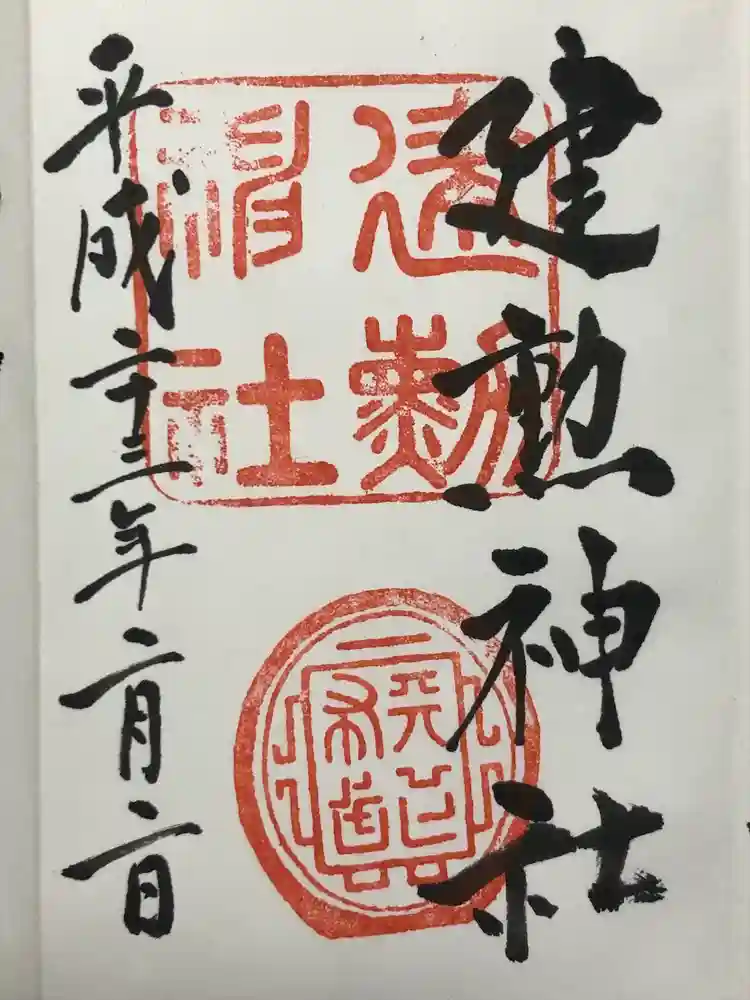 建勲神社
建勲
神社
平成二十三年二月二日